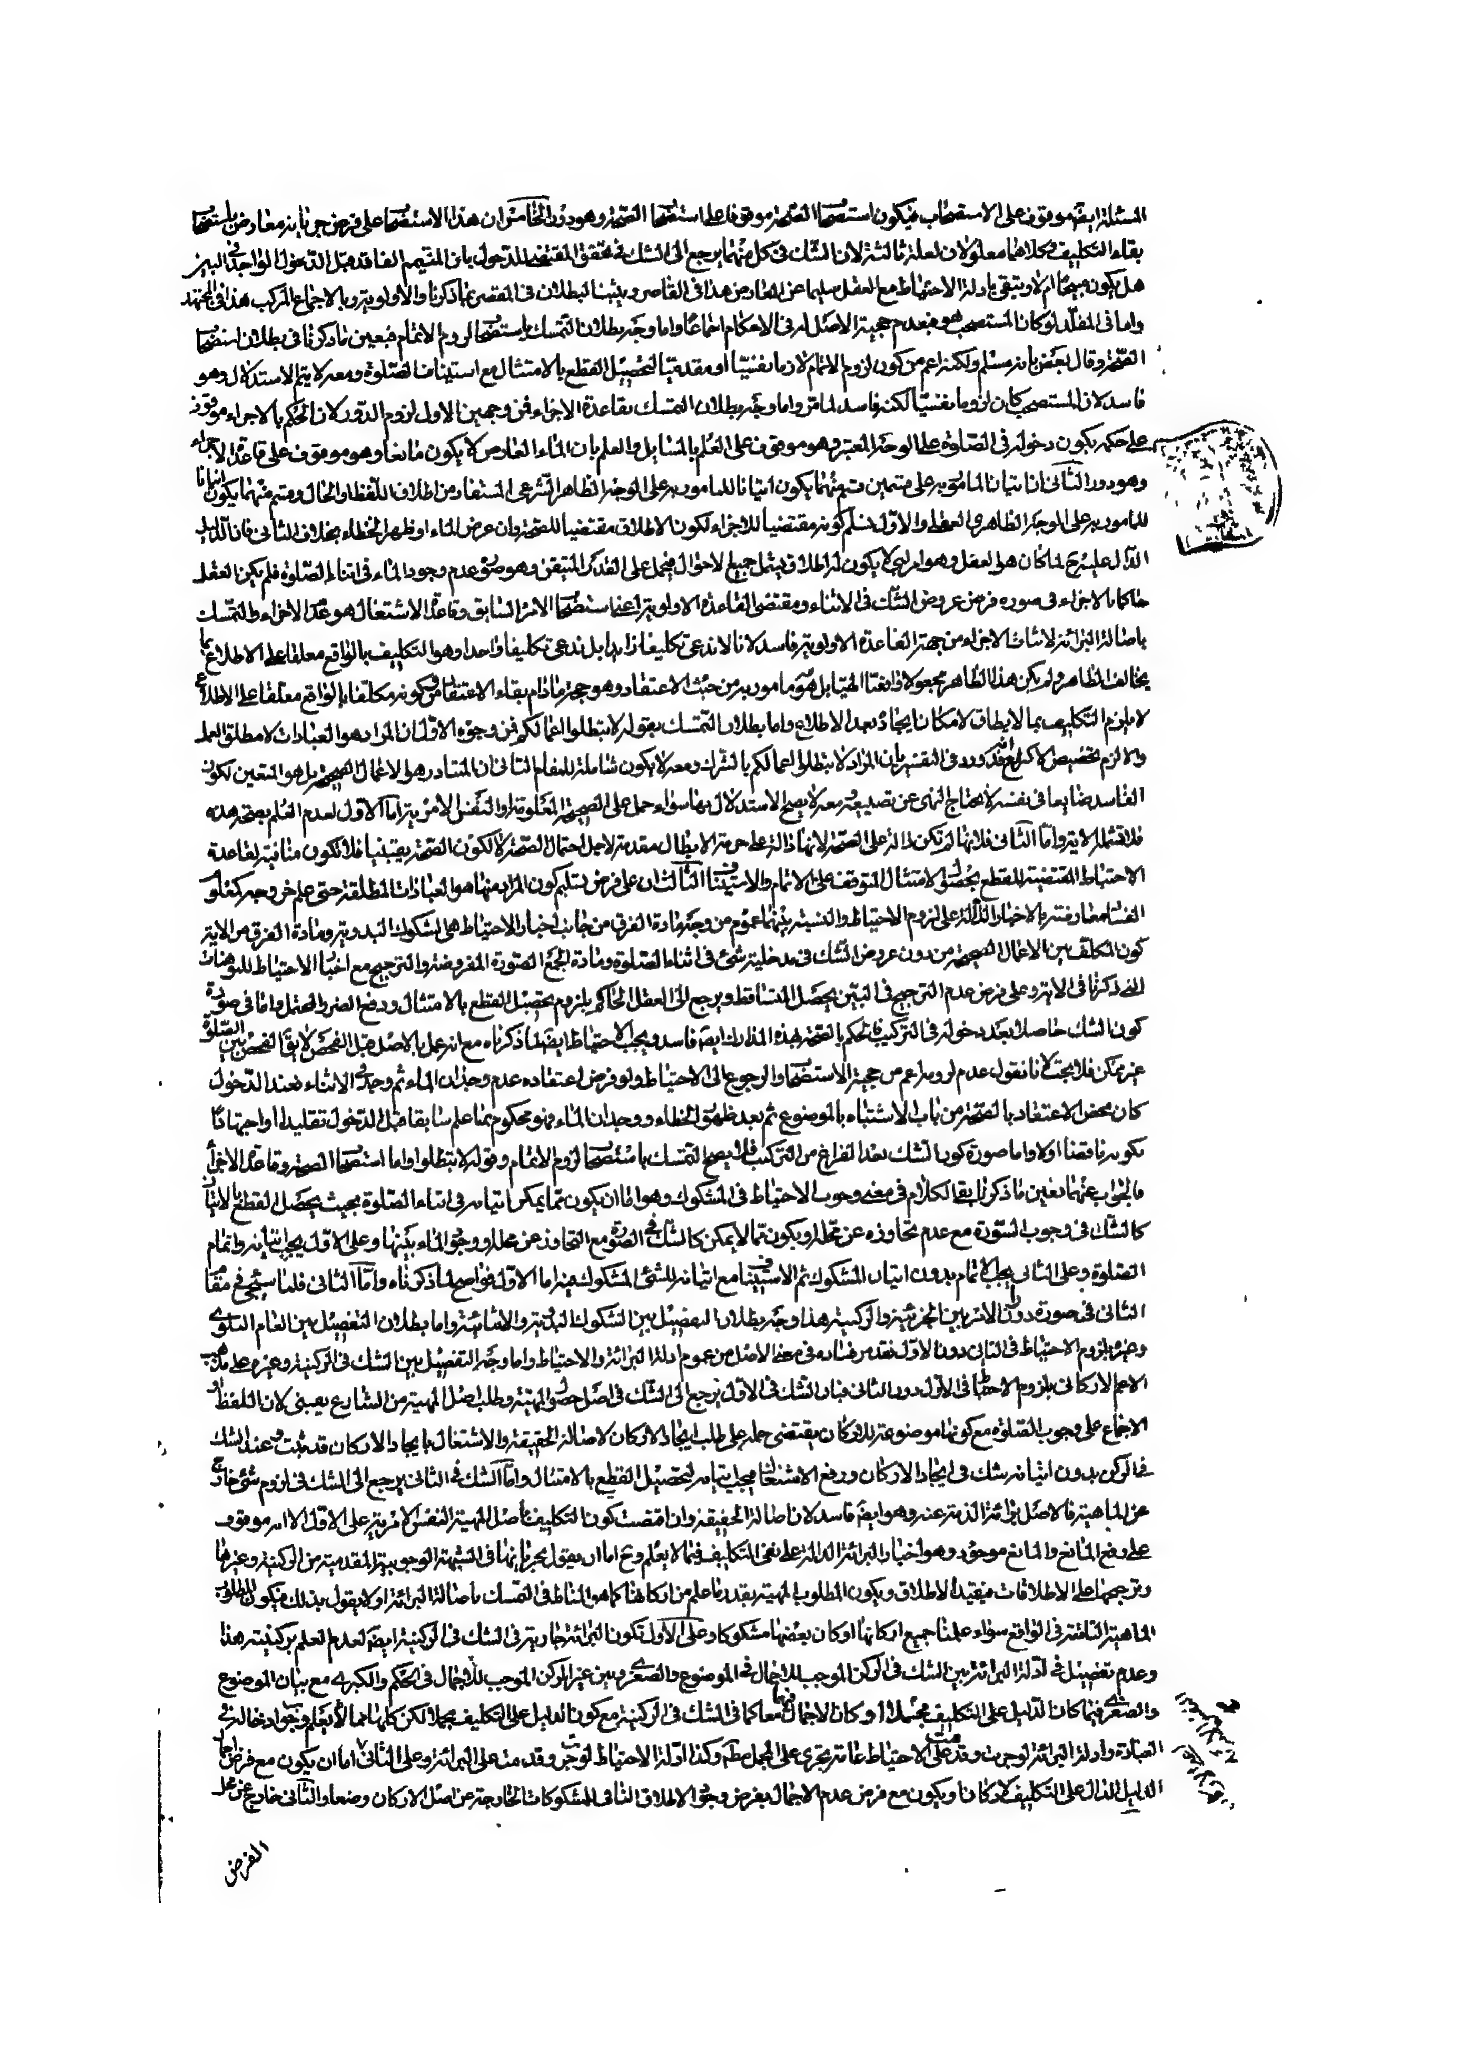 المسئلة ايضا موقوف على الاستصحاب فيكون استصحاب الصحة موقوفا على استصحاب الصحة وهو دور الخامس ان هذا الاستصحاب على فرض جريانه معارض باستصحاب
بقاء التكليف فكلاهما معلولان لعلة ثالثة لان الشك في كل منهما يرجع الى الشك في تحقق المقتضى للدخول بان المتيمم الفاقد قبل الدخول الواجد في البين
هل يكون مبيحا ام لا وتبقى بادلة الاحتياط مع العقل سليما عن المعارض هذا في القاصر ويثبت البطلان في المقصر بما ذكرنا والاولوية وبالاجماع المركب هذا في المجتهد
واما في المقلد لو كان المستصحب هو فبعدم حجية الاصل له في الاحكام اجماعا واما وجه بطلان التمسك باستصحاب لزوم الاتمام فبعين ما ذكرنا في بطلان استصحاب
الصحة وقال بعض بانه مسلم ولكنه اعم من كون لزوم الاتمام لازما نفسيا او مقدميا لتحصيل القطع بالامتثال مع استيناف الصلوة ومعه لا يتم الاستدلال وهو
فاسد لان المستصحب كان لزوما نفسيا لكنه فاسد لما مر واما وجه بطلان التمسك بقاعدة الاجزاء فمن وجهين الاول لزوم الدور لان الحكم بالاجزاء موقوف
على حكمه بكون دخوله في الصلوة على الوجه المعتبر وهو موقوف على العلم بالمسايل والعلم بان الماء العارض لا يكون مانعا وهو موقوف على قاعدة الاجزاء
وهو دور الثاني ان اتيان المامور به على قسمين قسم منهما يكون اتيانا للمامور به على الوجه الظاهر الشرعي المستفاد من اطلاق اللفظ والحال وقسم منهما يكون اتيانا
للمامور به على الوجه الظاهري العقلي والاول نسلم كونه مقتضيا للاجزاء لكون الاطلاق مقتضيا للصحة وان عرض الماء او ظهر الخطاء بخلاف الثاني فان الدليل
الدال عليه ح لما كان هو العقل وهو امر لبي لا يكون له اطلاق يشمل جميع الاحوال فيحمل على القدر المتيقن وهو صورة عدم وجود الماء في اثناء الصلوة فلم يكن العقل
حاكما بالاجزاء في صورة فرض عروض الشك في الاثناء ومقتضى القاعدة الاولوية اعني استصحاب الامر السابق وقاعدة الاشتغال هو عدم الاجزاء والتمسك
باصالة البرائة لاثبات الاجزاء من جهة القاعدة الاولوية فاسد لانا لا ندعي تكليفا زايدا بل ندعي تكليفا واحدا وهو التكليف بالواقع معلقا على الاطلاع بما
يخالف الظاهر ولم يكن هذا الظاهر مجعولا واقعيا بل هو مامور به من حيث الاعتقاد وهو حجة مادام بقاء الاعتقاد وفي كونه مكلفا بالواقع معلقا على الاطلاع
لا يلزم التكليف بما لا يطاق لامكان ايجاده بعد الاطلاع واما بطلان التمسك بقوله لا تبطلوا اعمالكم فمن وجوه الاول ان المراد هو العبادات لا مطلق العمل
والا لزم تخصيص الاكثر مع انه قد ورد في التفسير بان المراد لا تبطلوا اعمالكم بالشرك ومعه لا يكون شاملة للمقام الثاني ان المتبادر هو الاعمال الصحيحة بل هو المتعين لكون
الفاسد ضايعا في نفسه لا يحتاج النهي عن تضييعه ومعه لا يصح الاستدلال بها سواء حمل على الصحيحة المعلومة او النفس الامرية اما الاول لعدم العلم بصحة هذه
فلا تشمله الاية واما الثاني فلانها لم تكن دالة على الصحة لانها دالة على حرمة الابطال مقدمة لاجل احتمال الصحة لا لكون الصحة يقينيا فلا تكون منافية لقاعدة
الاحتياط المقتضية للقطع بحصول الامتثال المتوقف على الاتمام والاستيناف الثالث ان على فرض تسليم كون المراد منها هو العبادات المطلقة حتى علم خروجه كغلو
الفساد معارضته بالاخبار الدالة على لزوم الاحتياط والنسبة بينهما عموم من وجه ومادة الفرق من جانب اخبار الاحتياط هي الشكوك البدوية ومادة الفرق من الاية
كون المكلف بين الاعمال الصحيحة من دون عروض الشك في مدخلية شئ في اثناء الصلوة ومادة الجمع الصورة المفروضة والترجيح مع اخبار الاحتياط للموهنات
التي ذكرنا في الاية وعلى فرض عدم الترجيح في البين يحصل التساقط ويرجع الى العقل الحاكم بلزوم تحصيل القطع بالامتثال ودفع الضرر المحتمل واما في صورة
كون الشك حاصلا بعد دخوله في التركيب فالحكم بالصحة بهذه المدارك ايضا فاسد ويجب الاحتياط ايضا لما ذكرناه مع انه عمل بالاصل قبل الفحص لا يق الفحص بين الصلوة
غير ممكن فلا يجب لانا نقول عدم لزومه اعم من حجية الاستصحاب والرجوع الى الاحتياط ولو فرض اعتقاده عدم وجدان الماء ثم وجد في الاثناء فعند الدخول
كان محض الاعتقاد بالصحة من باب الاشتباه بالموضوع ثم بعد ظهور الخطاء ووجدان الماء فهو محكوم بما علم سابقا قبل الدخول تقليدا او اجتهادا
بكونه ناقضا او لا واما صورة كون الشك بعد الفراغ من التركيب فلا يصح التمسك باستصحاب لزوم الاتمام وقوله لا تبطلوا واما استصحاب الصحة وقاعدة الاجزاء
فالجواب عنهما بعين ما ذكرنا بقي الكلام في معنى وجوب الاحتياط في المشكوك وهو اما ان يكون مما يمكن اتيانه في اثناء الصلوة بحيث يحصل القطع بالاتيان
كالشك في وجوب السورة مع عدم تجاوزه عن محله او يكون مما لا يمكن كالشك في الصورة مع التجاوز عن محله ووجود الماء بينها وعلى الاول يجب اتيانه واتمام
الصلوة وعلى الثاني يجب الاتمام بدون اتيان المشكوك ثم الاستيناف مع اتيانه للشئ المشكوك فيه اما الاول فواضح لما ذكرناه واما الثاني فلما سيجئ في مقام
الثاني في صورة دوران الامر بين الجزئية والركنية هذا وجه بطلان التفصيل بين الشكوك البدوية والاثنائية واما بطلان التفصيل بين العام البلوى
وغيره بلزوم الاحتياط في الثاني دون الاول فقد مر فساده في معنى الاصل من عموم ادلة البرائة والاحتياط واما وجه التفصيل بين الشك في الركنية وغيره على مذهب
الاعم الاركاني بلزوم الاحتياط في الاول دون الثاني فبان الشك في الاول يرجع الى الشك في اصل حصول المهية وطلب اصل المهية من الشارع يقيني لان اللفظ او
الاجماع على وجوب الصلوة مع كونها موضوعة للاركان يقتضي حمله على طلب ايجاد الاركان لاصالة الحقيقة والاشتغال بايجاد الاركان قد ثبت وعند الشك
في الركن بدون اتيانه شك في ايجاد الاركان ورفع الاشتغال فيجب اتيانه لتحصيل القطع بالامتثال واما الشك في الثاني يرجع الى الشك في لزوم شئ خارج
عن الماهية فالاصل برائة الذمة عنه وهو ايضا فاسد لان اصالة الحقيقة وان اقتضت كون التكليف باصل المهية النفس الامرية على الاول الا انه موقوف
على رفع المانع والمانع موجود وهو اخبار البرائة الدالة على نفي التكليف فيما لا يعلم وح اما ان يقول بجريانها في الشبهة الوجوبية المقدمية من الركنية وغيرها
وترجيحها على الاطلاقات فيقيد الاطلاق ويكون المطلوب المهية بقدر ما علم من اركانها كما هو المناط في التمسك باصالة البرائة او لا يقول بذلك فيكون المطلوب
الماهية الثابتة في الواقع سواء علمنا جميع اركانها او كان بعضها مشكوكا وعلى الاول تكون البرائة جارية في الشك في الركنية ايضا لعدم العلم بركنيته هذا
وعدم تفصيل في ادلة البرائة بين الشك في الركن الموجب للاجمال في الموضوع والصغرى وبين غير الركن الموجب للاجمال في الحكم والكبرى مع بيان الموضوع
والصغرى فيما كان الدليل على التكليف مجملا او كان الاجمال فيهما معا كما في الشك في الركنية مع كون الدليل على التكليف مجملا لكن كلها مما لا يعلم وجواز ادخاله في
العبادة وادلة البرائة لو جرت وقدمت على الاحتياط عامة تجري على المجمل مطلقا وكذا ادلة الاحتياط لو جرت وقدمت على البرائة وعلى الثاني اما ان يكون مع فرض اجمال
الدليل الدال على التكليف لاركانا ويكون مع فرض عدم الاجمال بفرض وجود الاطلاق النافي للمشكوكات الخارجة عن اصل الاركان وضعا والثاني خارج عن محل
الفرض